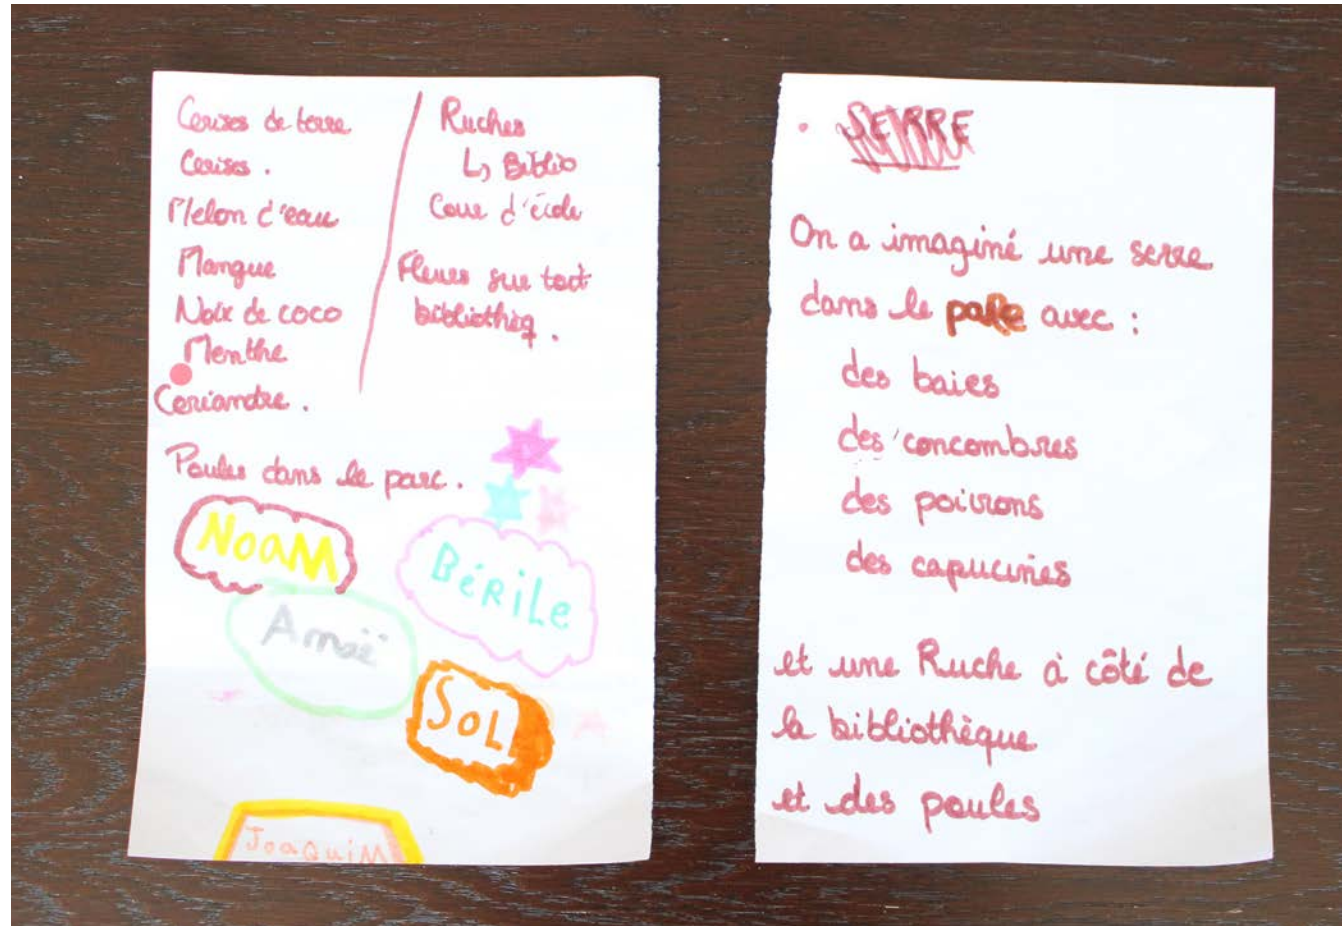 Cerises de terre
Cerises.
Melon d'eau
Mangue
Noix de coco
Menthe
Coriandre.
Ruches
↳ Biblio
Cour d'école
Fleurs sur toit
bibliothèq.
Poules dans le parc.
NoaM
BÉRiLe
Amaë
SoL
JoaQuiM
• SERRE
On a imaginé une serre
dans le parc avec :
des baies
des concombres
des poivrons
des capucines
et une Ruche à côté de
la bibliothèque
et des poules